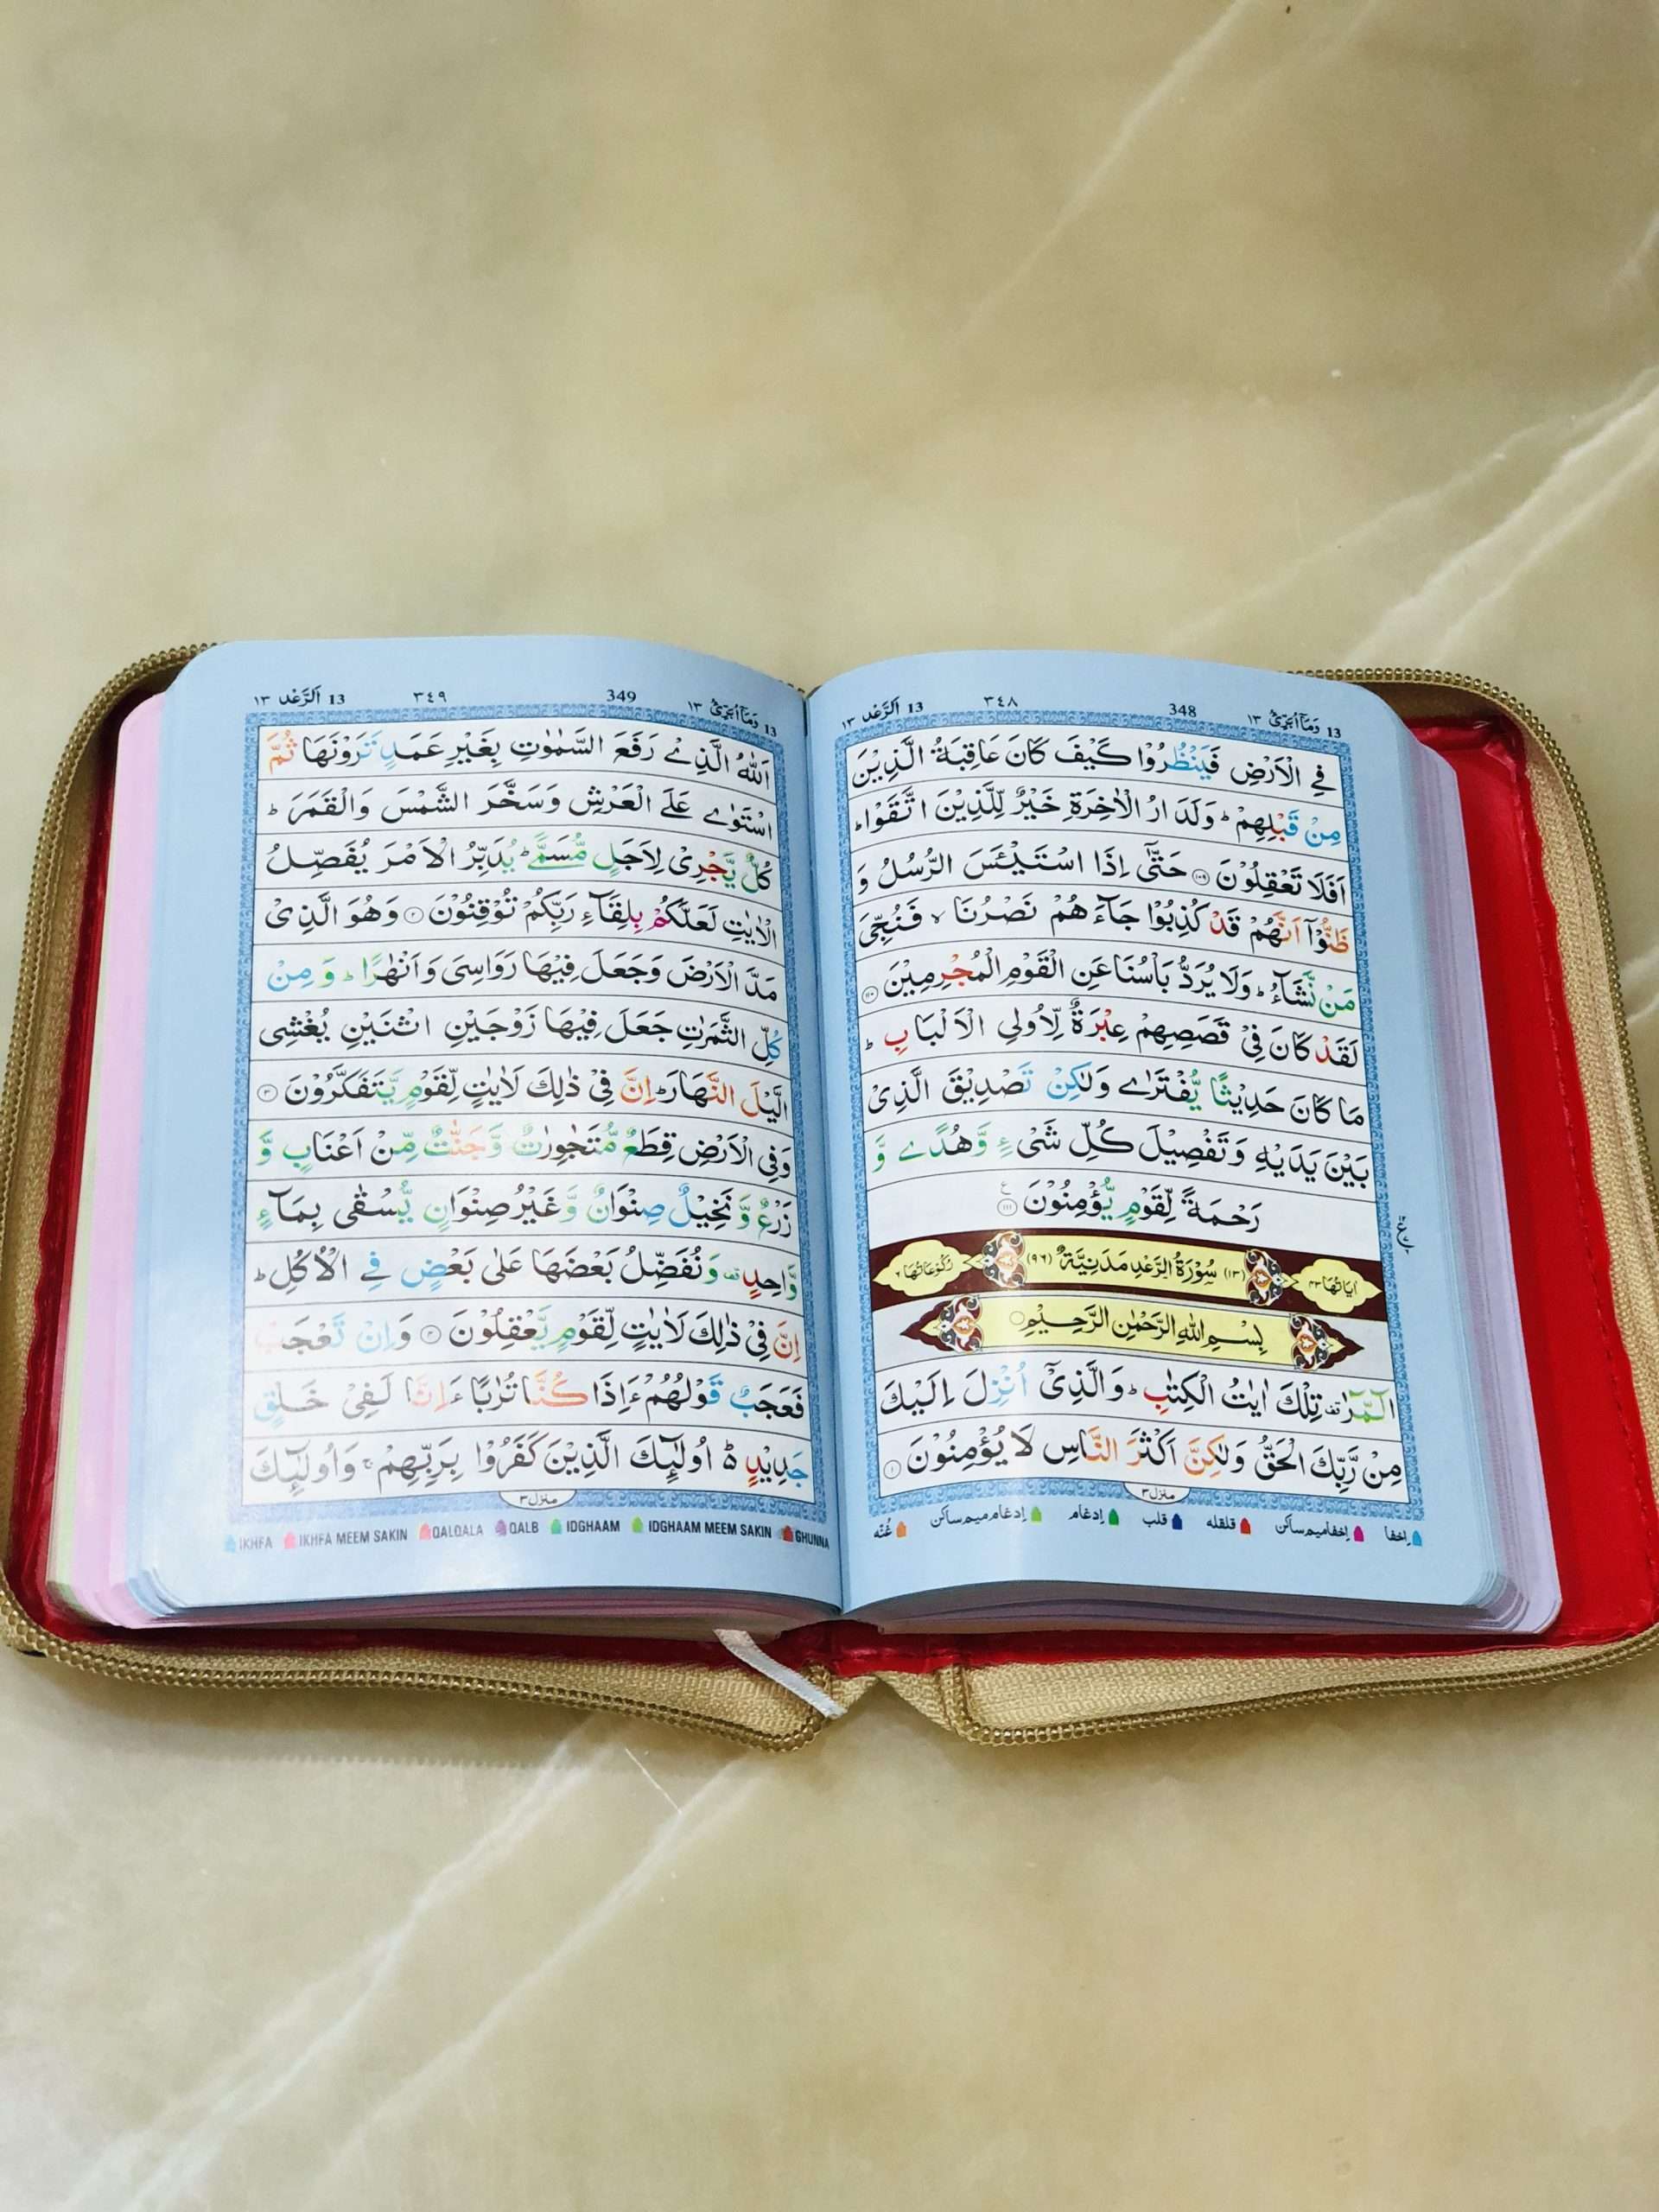 13 وَمَآ اُبَرِّئُ ١٣
348
٣٤٨
13 اَلرَّعْد ١٣
فِي الْاَرْضِ فَيَنْظُرُوْا كَيْفَ كَانَ عَاقِبَةُ الَّذِيْنَ
مِنْ قَبْلِهِمْ ؕ وَلَدَارُ الْاٰخِرَةِ خَيْرٌ لِّلَّذِيْنَ اتَّقَوْا ؕ
اَفَلَا تَعْقِلُوْنَ ﴿۱۰۹﴾ حَتّٰٓى اِذَا اسْتَيْـَٔسَ الرُّسُلُ وَ
ظَنُّوْۤا اَنَّهُمْ قَدْ كُذِبُوْا جَآءَهُمْ نَصْرُنَا ۙ فَنُجِّيَ
مَنْ نَّشَآءُ ؕ وَلَا يُرَدُّ بَاْسُنَا عَنِ الْقَوْمِ الْمُجْرِمِيْنَ ﴿۱۱۰﴾
لَقَدْ كَانَ فِيْ قَصَصِهِمْ عِبْرَةٌ لِّاُولِي الْاَلْبَابِ ؕ
مَا كَانَ حَدِيْثًا يُّفْتَرٰے وَلٰكِنْ تَصْدِيْقَ الَّذِيْ
بَيْنَ يَدَيْهِ وَتَفْصِيْلَ كُلِّ شَيْءٍ وَّهُدًے وَّ
رَحْمَةً لِّقَوْمٍ يُّؤْمِنُوْنَ ﴿۱۱۱﴾
اٰيَاتُهَا ٤٣
(١٣) سُوْرَةُ الرَّعْدِ مَدَنِيَّةٌ (٩٦)
رُكُوْعَاتُهَا ٦
بِسْمِ اللّٰهِ الرَّحْمٰنِ الرَّحِيْمِ
الٓمّٓرٰ ۟ تِلْكَ اٰيٰتُ الْكِتٰبِ ؕ وَالَّذِيْۤ اُنْزِلَ اِلَيْكَ
مِنْ رَّبِّكَ الْحَقُّ وَلٰكِنَّ اَكْثَرَ النَّاسِ لَا يُؤْمِنُوْنَ ﴿۱﴾
منزل ٣
إخفا إخفا ميم ساكن قلقله قلب إدغام إدغام ميم ساكن غُنّه
13 وَمَآ اُبَرِّئُ ١٣
349
٣٤٩
13 اَلرَّعْد ١٣
اَللّٰهُ الَّذِےْ رَفَعَ السَّمٰوٰتِ بِغَيْرِ عَمَدٍ تَرَوْنَهَا ثُمَّ
اسْتَوٰے عَلَے الْعَرْشِ وَسَخَّرَ الشَّمْسَ وَالْقَمَرَ ؕ
كُلٌّ يَّجْرِيْ لِاَجَلٍ مُّسَمًّے ؕ يُدَبِّرُ الْاَمْرَ يُفَصِّلُ
الْاٰيٰتِ لَعَلَّكُمْ بِلِقَآءِ رَبِّكُمْ تُوْقِنُوْنَ ﴿۲﴾ وَهُوَ الَّذِيْ
مَدَّ الْاَرْضَ وَجَعَلَ فِيْهَا رَوَاسِيَ وَاَنْهٰرًا ؕ وَمِنْ
كُلِّ الثَّمَرٰتِ جَعَلَ فِيْهَا زَوْجَيْنِ اثْنَيْنِ يُغْشِي
الَّيْلَ النَّهَارَ ؕ اِنَّ فِيْ ذٰلِكَ لَاٰيٰتٍ لِّقَوْمٍ يَّتَفَكَّرُوْنَ ﴿۳﴾
وَفِي الْاَرْضِ قِطَعٌ مُّتَجٰوِرٰتٌ وَّجَنّٰتٌ مِّنْ اَعْنَابٍ وَّ
زَرْعٌ وَّنَخِيْلٌ صِنْوَانٌ وَّغَيْرُ صِنْوَانٍ يُّسْقٰى بِمَآءٍ
وَّاحِدٍ ۟ وَنُفَضِّلُ بَعْضَهَا عَلٰى بَعْضٍ فِے الْاُكُلِ ؕ
اِنَّ فِيْ ذٰلِكَ لَاٰيٰتٍ لِّقَوْمٍ يَّعْقِلُوْنَ ﴿۴﴾ وَاِنْ تَعْجَبْ
فَعَجَبٌ قَوْلُهُمْ ءَاِذَا كُنَّا تُرٰبًا ءَاِنَّا لَفِيْ خَلْقٍ
جَدِيْدٍ ؕ۬ اُولٰٓئِكَ الَّذِيْنَ كَفَرُوْا بِرَبِّهِمْ ۚ وَاُولٰٓئِكَ
منزل ٣
IKHFA IKHFA MEEM SAKIN QALQALA QALB IDGHAAM IDGHAAM MEEM SAKIN GHUNNA